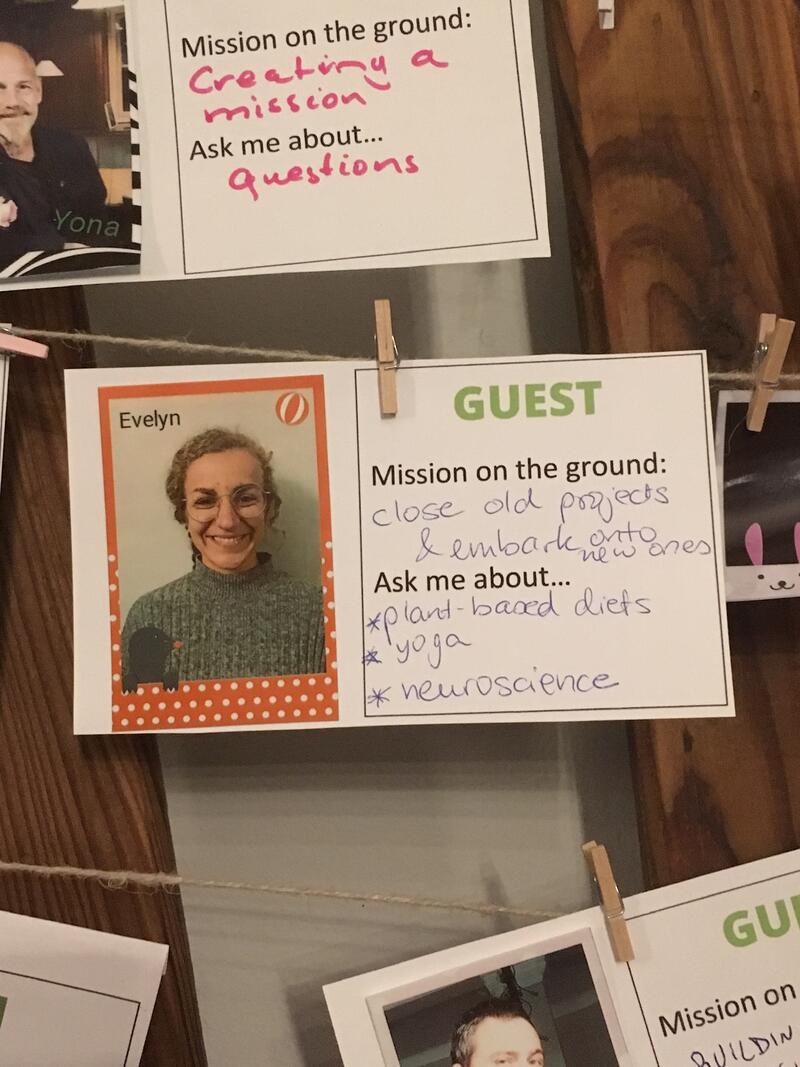 Mission on the ground:
Creating a
mission
Ask me about...
Questions
Yona
Evelyn
GUEST
Mission on the ground:
close old projects
& embark onto
new ones
Ask me about...
*plant-based diets
* yoga
* neuroscience
GUE
Mission on
BUILDIN